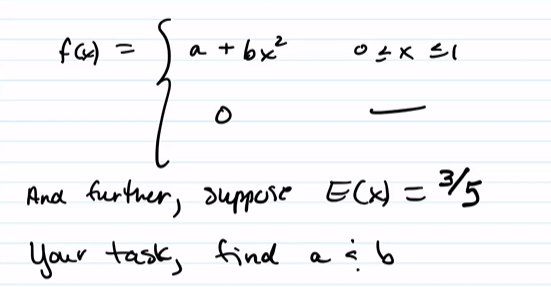 f(x) = { a + bx² 0 ≤ x ≤ 1
0 —
And further, suppose E(x) = 3/5
Your task, find a & b